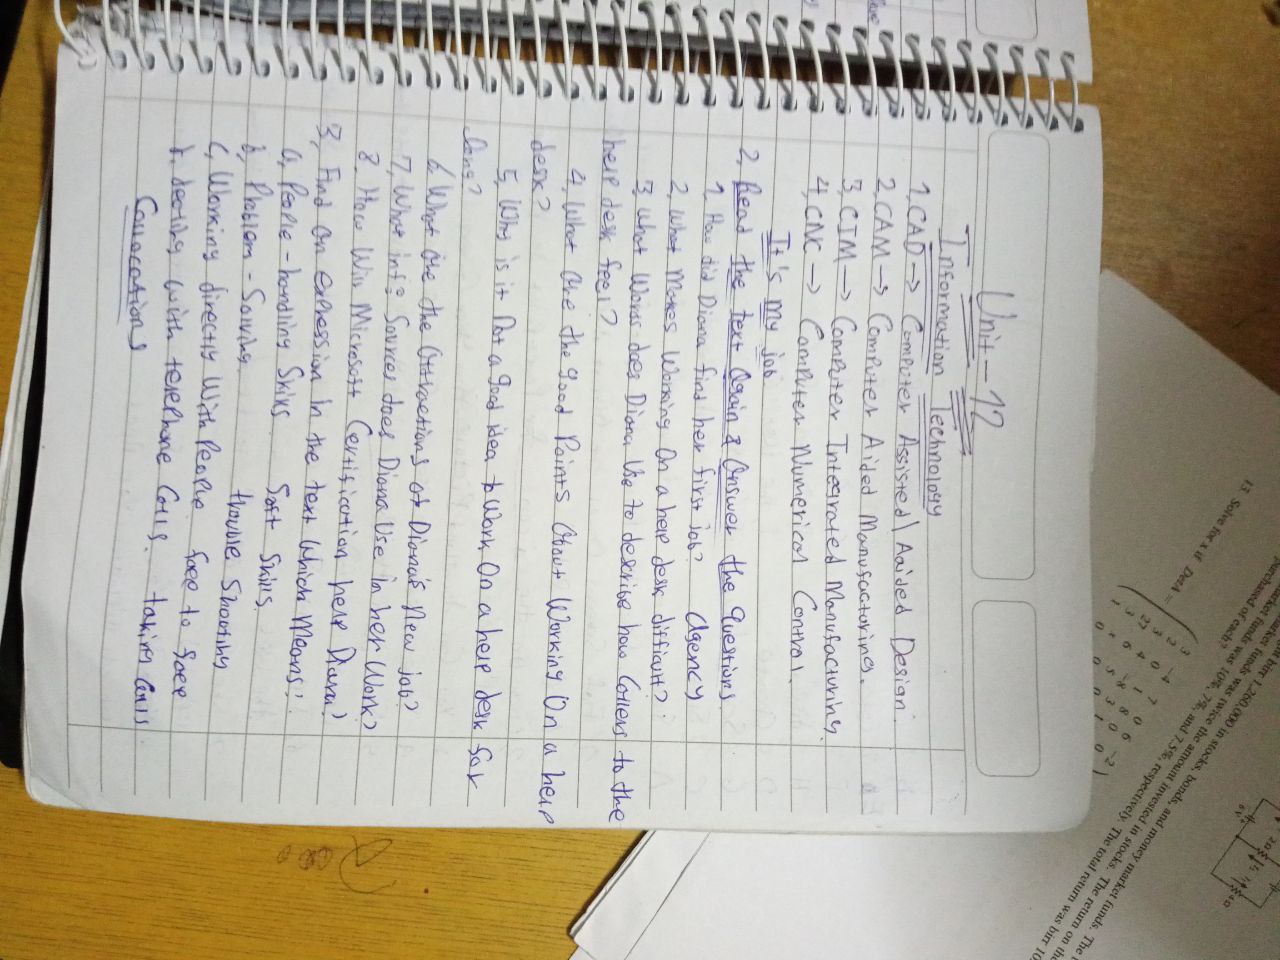 Unit - 12
Information Technology
1, CAD → Computer Assisted | Aaided Design.
2, CAM → Computer Aided Manufactoring.
3, CIM → Computer Integrated Manufacturing.
4, CNC → Computer Numerical Control.
It's my job
2, Read the text again & answer the questions
1, How did Diana find her first job? Agency
2, What makes working on a help desk difficult?
3, What words does Diana use to describe how callers to the
help desk feel?
4, What are the good points about working on a help
desk?
5, Why is it not a good idea to work on a help desk for
long?
6, What are the attractions of Diana's new job?
7, What info sources does Diana use in her work?
8, How will Microsoft Certification help Diana?
3, Find an expression in the text which means:
a, People-handling skills soft skills
b, Problem-Solving trouble shooting
c, Working directly with people face to face
d, dealing with telephone calls. taking calls
Collocations
13. Solve for x if Det A =
1,200,000 in stocks, bonds, and money market funds. The
market funds was twice the amount invested in stocks. The return on the
was 10%, 7%, and 7.5%, respectively. The total return was birr 10
purchased of each?